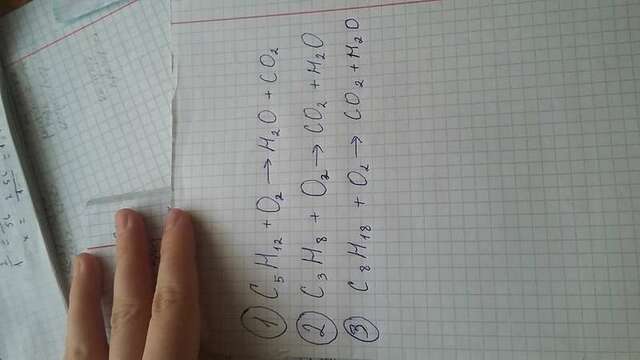 ① C₅H₁₂ + O₂ → H₂O + CO₂
② C₃H₈ + O₂ → CO₂ + H₂O
③ C₈H₁₈ + O₂ → CO₂ + H₂O